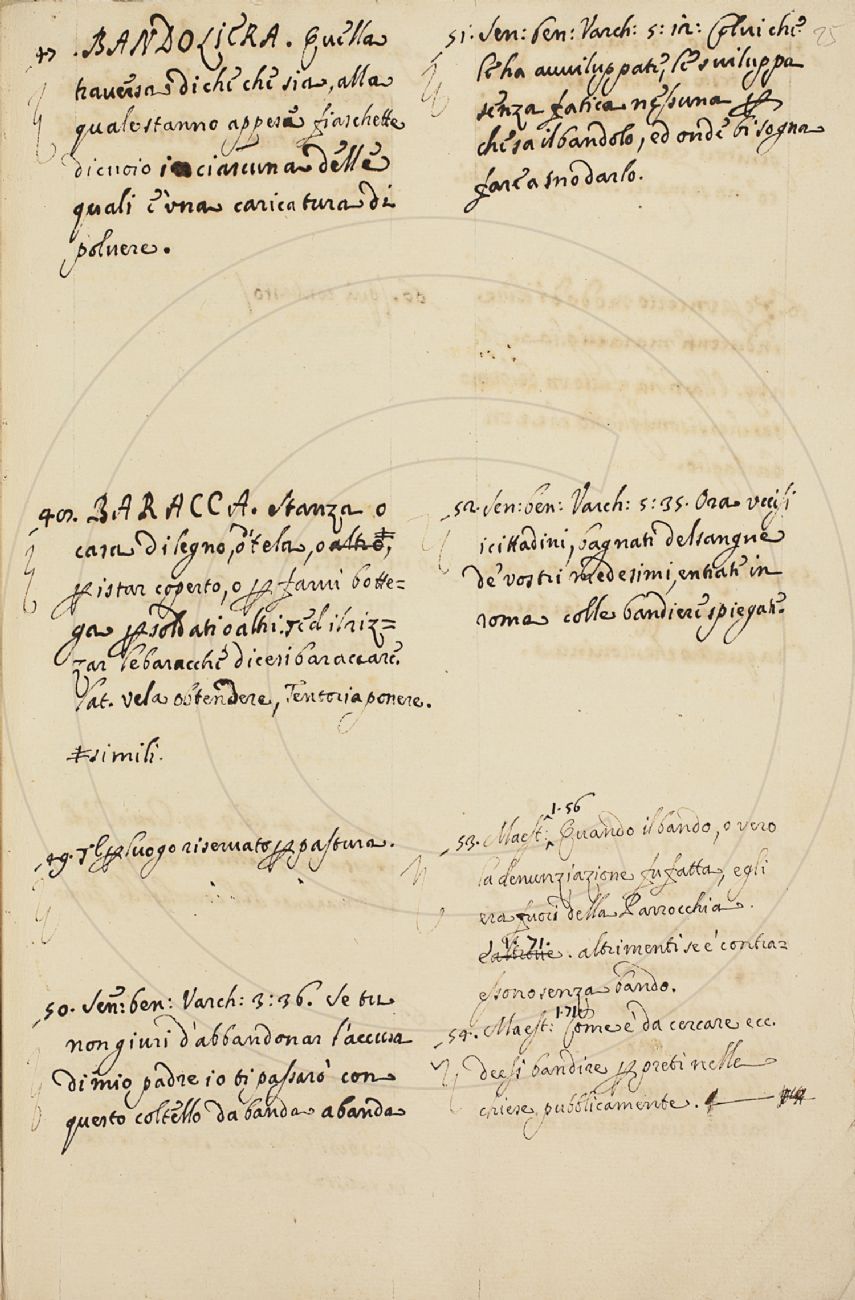 47. BANDOLIERA. Quella
traversa di che che sia, alla
quale stanno appese fiaschette
di cuoio in ciascuna delle
quali è una caricatura di
polvere.
48. BARACCA. Stanza o
casa di legno, o tela, o altro,
p istar coperto, o p farvi botte=
ga p soldati o altri. Ed il riz=
zar le baracche dicesi baraccare.
Lat. vela obtendere, Tentoria ponere.
‡ simili.
49. p luogo riservato p pastura.
50. Sen: ben: Varch: 3: 36. Se tu
non giuri d'abbandonar l'accusa
di mio padre io ti passarò con
questo coltello da banda a banda
25
51. Sen: ben: Varch: 5: 12: Colui che
le ha avviluppate, le sviluppa
senza fatica nessuna p
che sa il bandolo, ed onde bisogna
fare a snodarlo.
52. Sen: ben: Varch: 5: 35. Ora uccisi
i cittadini, bagnati del sangue
de' vostri medesimi, entrate in
roma colle bandiere spiegate.
53. Maest: 1. 56 Quando il bando, o vero
la denunziazione fu fatta, egli
era fuori della Parrocchia.
1. 71. altrimenti se è contra=
essono senza bando.
54. Maest: 1. 71 Come è da cercare ecc.
deesi bandire p preti nelle
chiese pubblicamente.